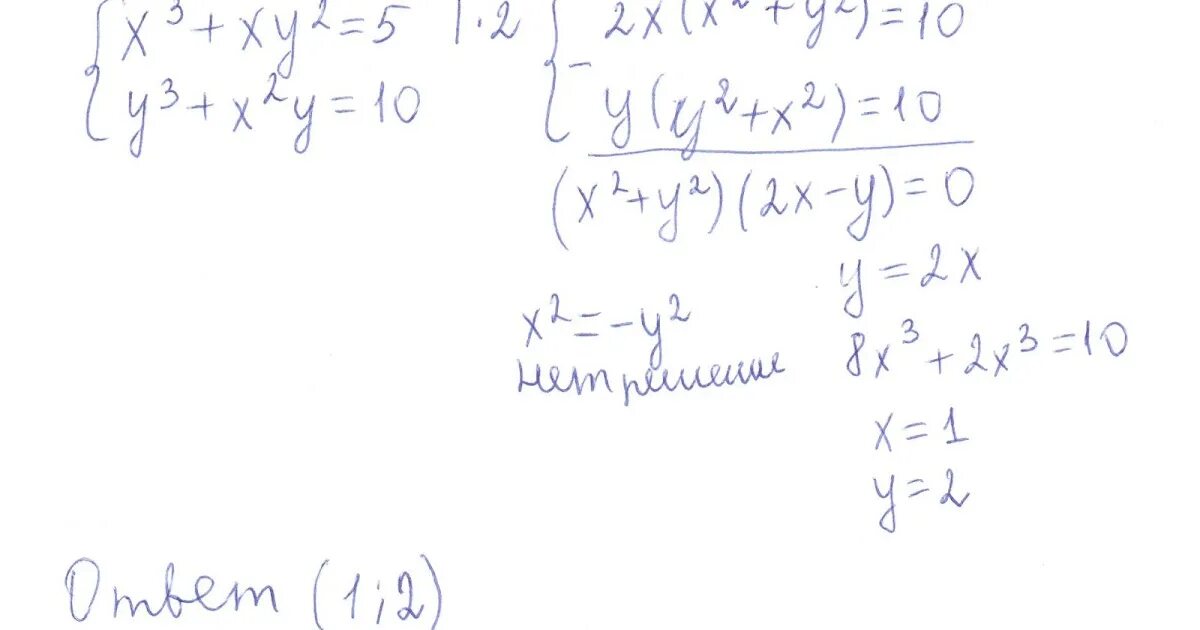 x³ + xy² = 5 | · 2
y³ + x²y = 10
2x(x² + y²) = 10
−
y(y² + x²) = 10
(x² + y²)(2x − y) = 0
y = 2x
x² = −y²
нет решение
8x³ + 2x³ = 10
x = 1
y = 2
Ответ (1; 2)